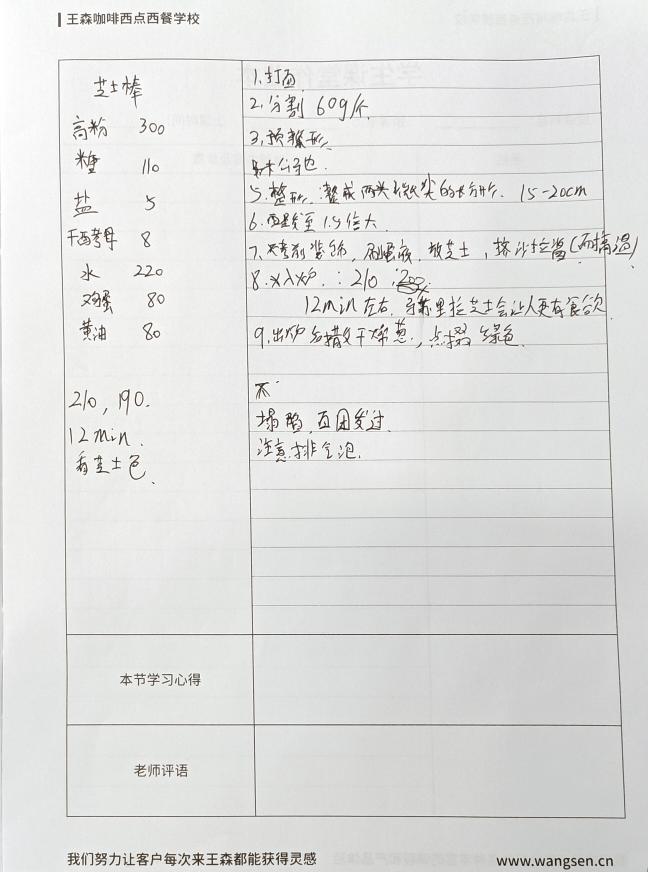 王森咖啡西点西餐学校
芝士棒
高粉 300
糖 110
盐 5
干酵母 8
水 220
鸡蛋 80
黄油 80
210, 190.
12min.
看芝士色.
1. 打面
2. 分割 60g/个
3. 预整形
5. 整形. 整成两头微尖的长方形. 15-20cm
6. 醒发至 1.5倍大.
7. 烤前装饰, 刷蛋液, 放芝士, 挤沙拉酱(耐高温)
8. 入炉. : 210
12min左右. 马苏里拉芝士会让人更有食欲
9. 出炉 撒干燥葱, 点缀 绿色.
不
塌陷, 面团发过.
注意排气泡.
本节学习心得
老师评语
我们努力让客户每次来王森都能获得灵感
www.wangsen.cn